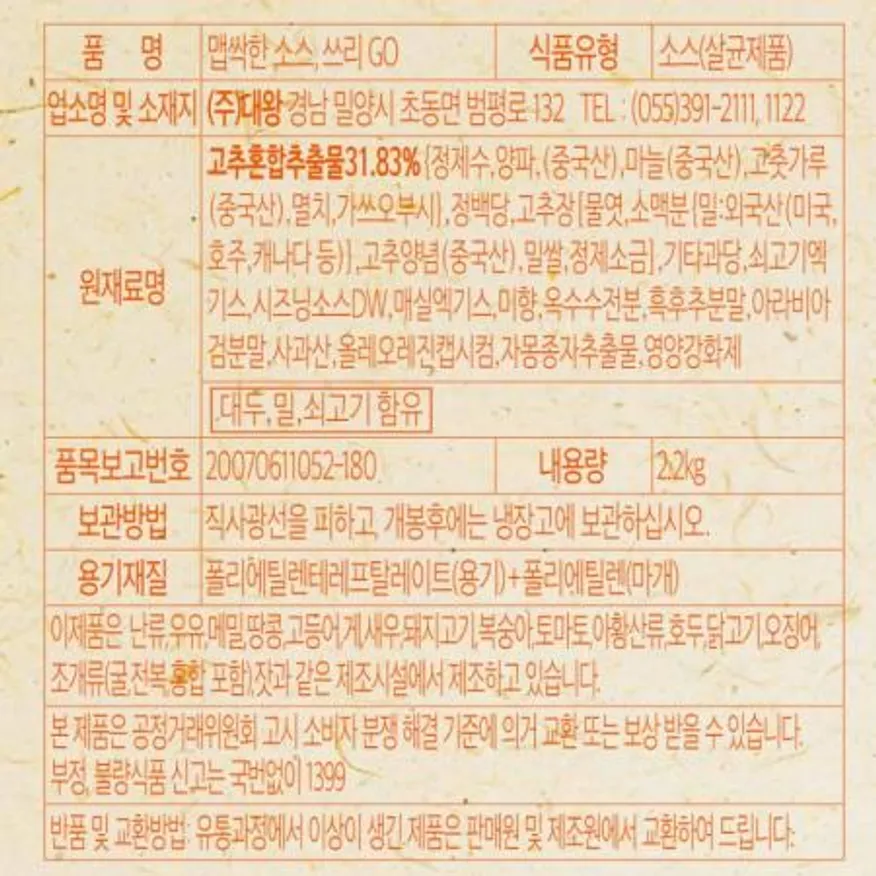 품 명 맵싹한 소스, 쓰리 GO 식품유형 소스(살균제품)
업소명 및 소재지 (주)대왕 경남 밀양시 초동면 범평로 132 TEL : (055)391-2111, 1122
원재료명
고추혼합추출물31.83% {정제수,양파,(중국산),마늘(중국산),고춧가루
(중국산),멸치,가쓰오부시},정백당,고추장[물엿,소맥분{밀:외국산(미국,
호주,캐나다 등)},고추양념(중국산),밀쌀,정제소금],기타과당,쇠고기엑
기스,시즈닝소스DW,매실엑기스,미향,옥수수전분,흑후추분말,아라비아
검분말,사과산,올레오레진캡시컴,자몽종자추출물,영양강화제
대두,밀,쇠고기 함유
품목보고번호 20070611052-180 내용량 2.2kg
보관방법 직사광선을 피하고, 개봉후에는 냉장고에 보관하십시오.
용기재질 폴리에틸렌테레프탈레이트(용기)+폴리에틸렌(마개)
이제품은 난류,우유,메밀,땅콩,고등어,게,새우,돼지고기,복숭아,토마토,아황산류,호두,닭고기,오징어,
조개류(굴,전복,홍합 포함),잣과 같은 제조시설에서 제조하고 있습니다.
본 제품은 공정거래위원회 고시 소비자 분쟁 해결 기준에 의거 교환 또는 보상 받을 수 있습니다.
부정, 불량식품 신고는 국번없이 1399
반품 및 교환방법: 유통과정에서 이상이 생긴 제품은 판매원 및 제조원에서 교환하여 드립니다.